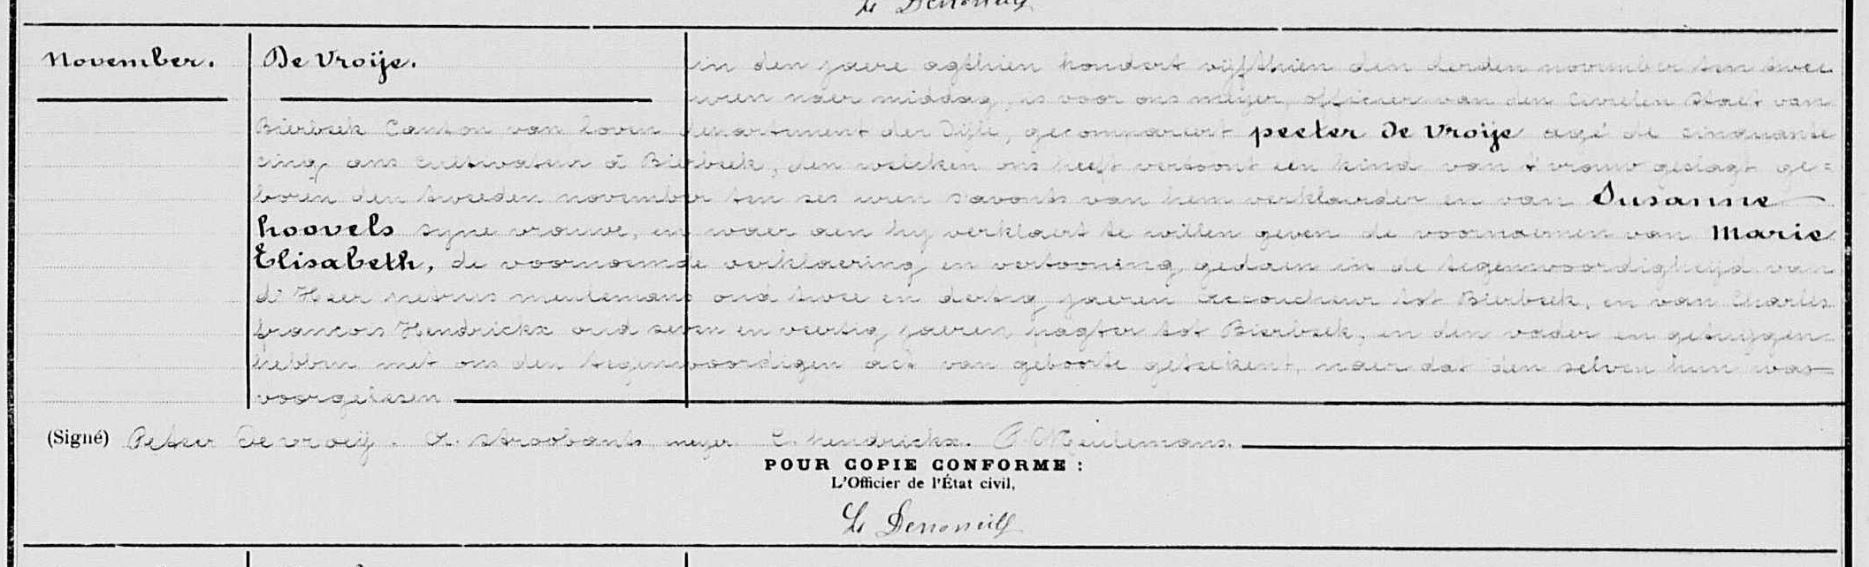 November. De Vroije. in den jaere agthien hondert vijfthien den derden november ten twee
uren naer middag, is voor ons meyer, officier van den Civielen Staet van
Bierbeek Canton van loven departement der Dijle, gecompareert peeter De Vroije agé de cinquante
cinq ans cultivateur à Bierbeek, den welcken ons heeft vertoont een kind van t vrouw geslagt ge=
boren den tweeden november ten ses uren s'avonts van hem verklaerder en van Susanne
hoovels syne vrouwe, en waer aen hy verklaert te willen geven de voornaemen van Marie
Elisabeth, de voornoemde verklaering en vertooning gedaen in de tegenwoordigheijd van
d' Heer petrus meulemans oud twee en dertig jaeren accoucheur tot Bierbeek, en van Charles
francois Hendrickx oud seven en veertig jaeren pagter tot Bierbeek, en den vader en getuygen
hebben met ons den tegenwoordigen act van geboorte geteekent, naer dat den selven hun was
voorgelesen
(Signé) Peteer De vroeij. A. Stroobants meyer C. hendrickx. P. Meulemans.
POUR COPIE CONFORME :
L'Officier de l'État civil,